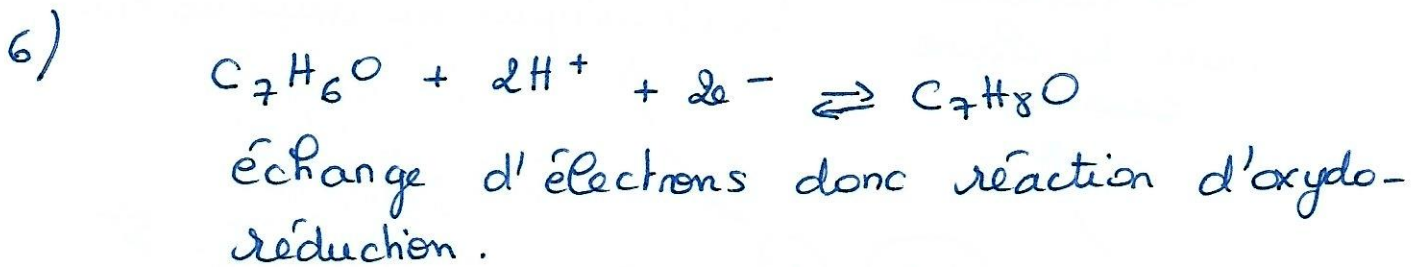 6) C₇H₆O + 2H⁺ + 2e⁻ ⇌ C₇H₈O
échange d'électrons donc réaction d'oxydo-
réduction.